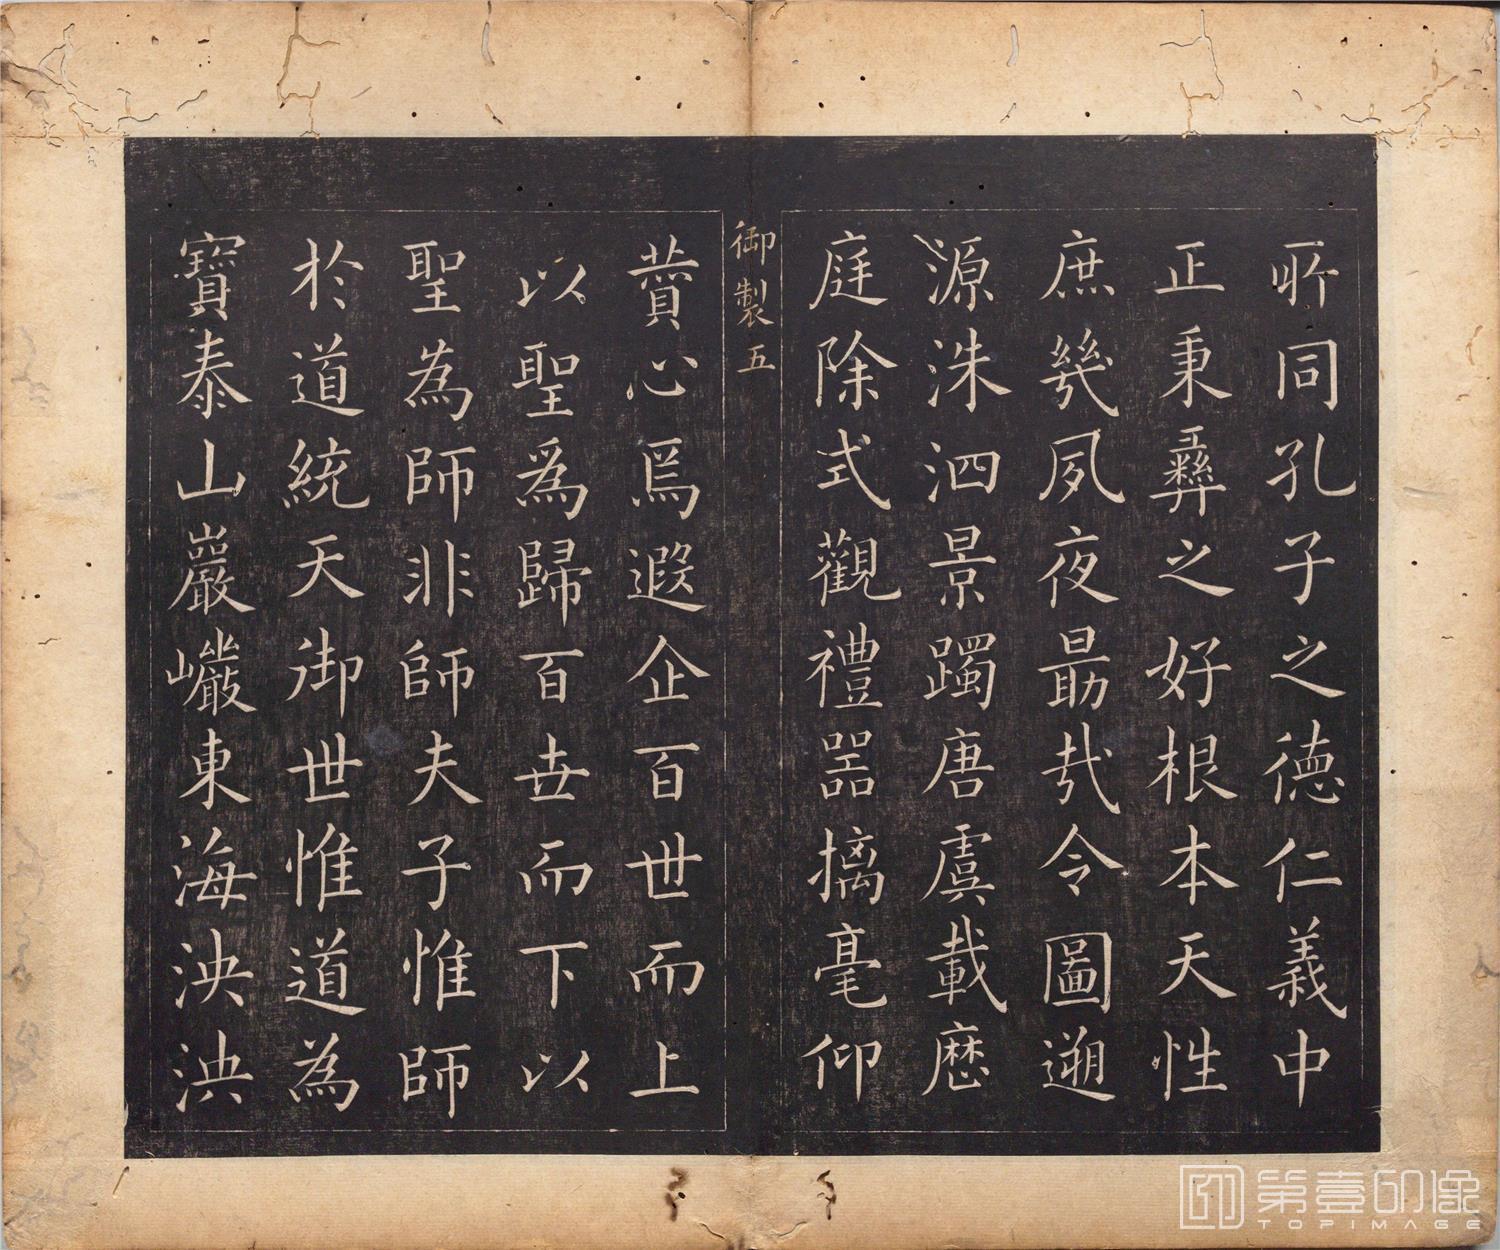 所同孔子之德仁義中
正秉彝之好根本天性
庶幾夙夜勗哉令圖遡
源洙泗景躅唐虞載歷
庭除式觀禮器摛毫仰
御製五
贊心焉遐企百世而上
以聖為歸百世而下以
聖為師非師夫子惟師
於道統天御世惟道為
寶泰山巖巖東海泱泱
第壹印像
TOPIMAGE